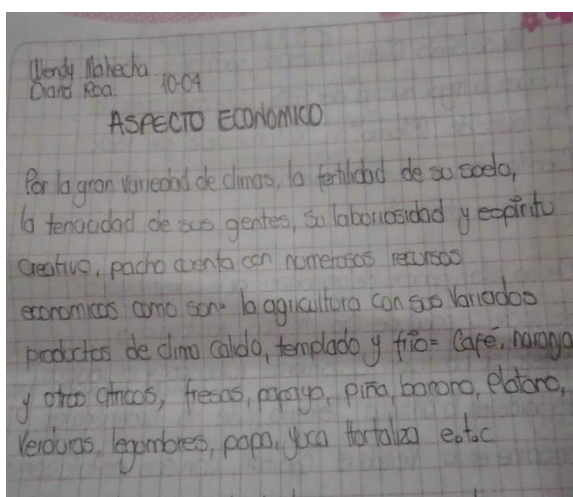 Wendy Mahecha
David Roa. 10-04
ASPECTO ECONOMICO
Por la gran variedad de climas, la fertilidad de su suelo,
la tenacidad de sus gentes, su laboriosidad y espiritu
creativo, pacho cuenta con numerosos recursos
economicos como son= la agricultura con sus variados
productos de clima calido, templado y frio= Café, naranja
y otros citricos, fresas, papaya, piña, banano, platano,
verduras, legumbres, papa, yuca hortaliza e.t.c